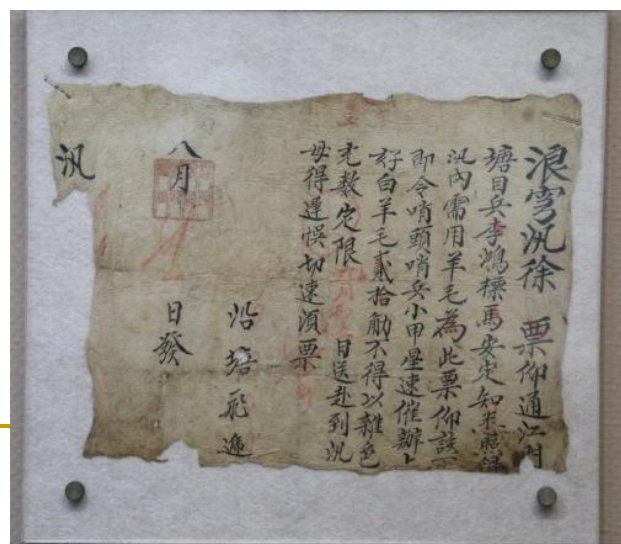 浪穹汛徐 票仰通江
塘目兵李鴻標馬安定知悉照得
汛內需用羊毛為此票仰該
即令哨頭哨兵小甲星速催辦上
好白羊毛貳拾觔不得以雜色
充数定限 日送赴到汛
毋得遲悮切速須票
沿塘飛遞
八月 日發
汛